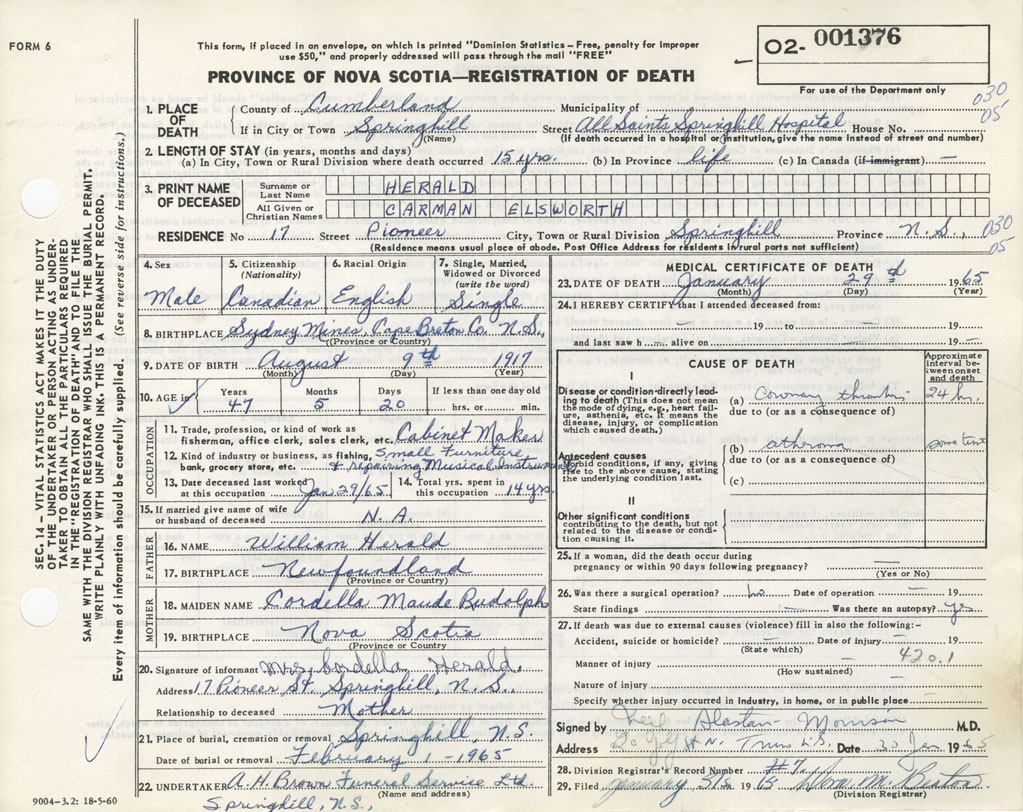 FORM 6
This form, if placed in an envelope, on which is printed "Dominion Statistics – Free, penalty for improper
use $50," and properly addressed will pass through the mail "FREE"
O2- 001376
PROVINCE OF NOVA SCOTIA—REGISTRATION OF DEATH
For use of the Department only
030
05
1. PLACE OF DEATH
County of Cumberland Municipality of
If in City or Town Springhill Street All Saints Springhill Hospital House No.
(Name) (If death occurred in a hospital or institution, give the name instead of street and number)
2. LENGTH OF STAY (in years, months and days)
(a) In City, Town or Rural Division where death occurred 15 yrs. (b) In Province life (c) In Canada (if immigrant) —
3. PRINT NAME OF DECEASED
Surname or Last Name HERALD
All Given or Christian Names CARMAN ELSWORTH
RESIDENCE No 17 Street Pioneer City, Town or Rural Division Springhill Province N.S., 030
05
(Residence means usual place of abode. Post Office Address for residents in rural parts not sufficient)
4. Sex Male
5. Citizenship (Nationality) Canadian
6. Racial Origin English
7. Single, Married, Widowed or Divorced (write the word) Single
8. BIRTHPLACE Sydney Mines, Cape Breton Co. N.S.,
(Province or Country)
9. DATE OF BIRTH August 9th 1917
(Month) (Day) (Year)
10. AGE in Years 47 Months 5 Days 20 If less than one day old hrs. or min.
OCCUPATION
11. Trade, profession, or kind of work as
fisherman, office clerk, sales clerk, etc. Cabinet Maker
12. Kind of industry or business, as fishing, Small Furniture
bank, grocery store, etc. & repairing Musical Instruments
13. Date deceased last worked at this occupation Jan 29/65
14. Total yrs. spent in this occupation 14 yrs.
15. If married give name of wife
or husband of deceased N.A.
FATHER
16. NAME William Herald
17. BIRTHPLACE Newfoundland
(Province or Country)
MOTHER
18. MAIDEN NAME Cordella Maude Rudolph
19. BIRTHPLACE Nova Scotia
(Province or Country)
20. Signature of informant Mrs. Cordella Herald.
Address 17 Pioneer St. Springhill, N.S.,
Relationship to deceased Mother
21. Place of burial, cremation or removal Springhill, N.S.
Date of burial or removal February 1 - 1965
22. UNDERTAKER A.H. Brown Funeral Service Ltd.
(Name and address)
Springhill, N.S.,
9004–3.2: 18-5-60
MEDICAL CERTIFICATE OF DEATH
23. DATE OF DEATH January 29th 1965
(Month) (Day) (Year)
24. I HEREBY CERTIFY that I attended deceased from:
— 19 — to — 19 —
and last saw h — alive on — 19 —
CAUSE OF DEATH
Approximate interval between onset and death
I
Disease or condition directly leading to death (This does not mean the mode of dying, e.g., heart failure, asthenia, etc. It means the disease, injury, or complication which caused death.)
(a) Coronary 24 hr.
due to (or as a consequence of)
Antecedent causes
Morbid conditions, if any, giving rise to the above cause, stating the underlying condition last.
(b) atheroma some
due to (or as a consequence of)
(c)
II
Other significant conditions
contributing to the death, but not related to the disease or condition causing it.
25. If a woman, did the death occur during
pregnancy or within 90 days following pregnancy? —
(Yes or No)
26. Was there a surgical operation? no Date of operation — 19
State findings — Was there an autopsy? yes
27. If death was due to external causes (violence) fill in also the following:-
Accident, suicide or homicide? — Date of injury — 19
(State which)
420.1
Manner of injury —
(How sustained)
Nature of injury
Specify whether injury occurred in industry, in home, or in public place
Signed by Neil Alastair Morrison M.D.
Address Truro N.S. Date 30 Jan 1965
28. Division Registrar's Record Number #7
29. Filed January 31st 1965
(Division Registrar)
SEC. 14 – VITAL STATISTICS ACT MAKES IT THE DUTY
OF THE UNDERTAKER OR PERSON ACTING AS UNDER-
TAKER TO OBTAIN ALL THE PARTICULARS REQUIRED
IN THE "REGISTRATION OF DEATH" AND TO FILE THE
SAME WITH THE DIVISION REGISTRAR WHO SHALL ISSUE THE BURIAL PERMIT.
WRITE PLAINLY WITH UNFADING INK. THIS IS A PERMANENT RECORD.
Every item of information should be carefully supplied. (See reverse side for instructions.)